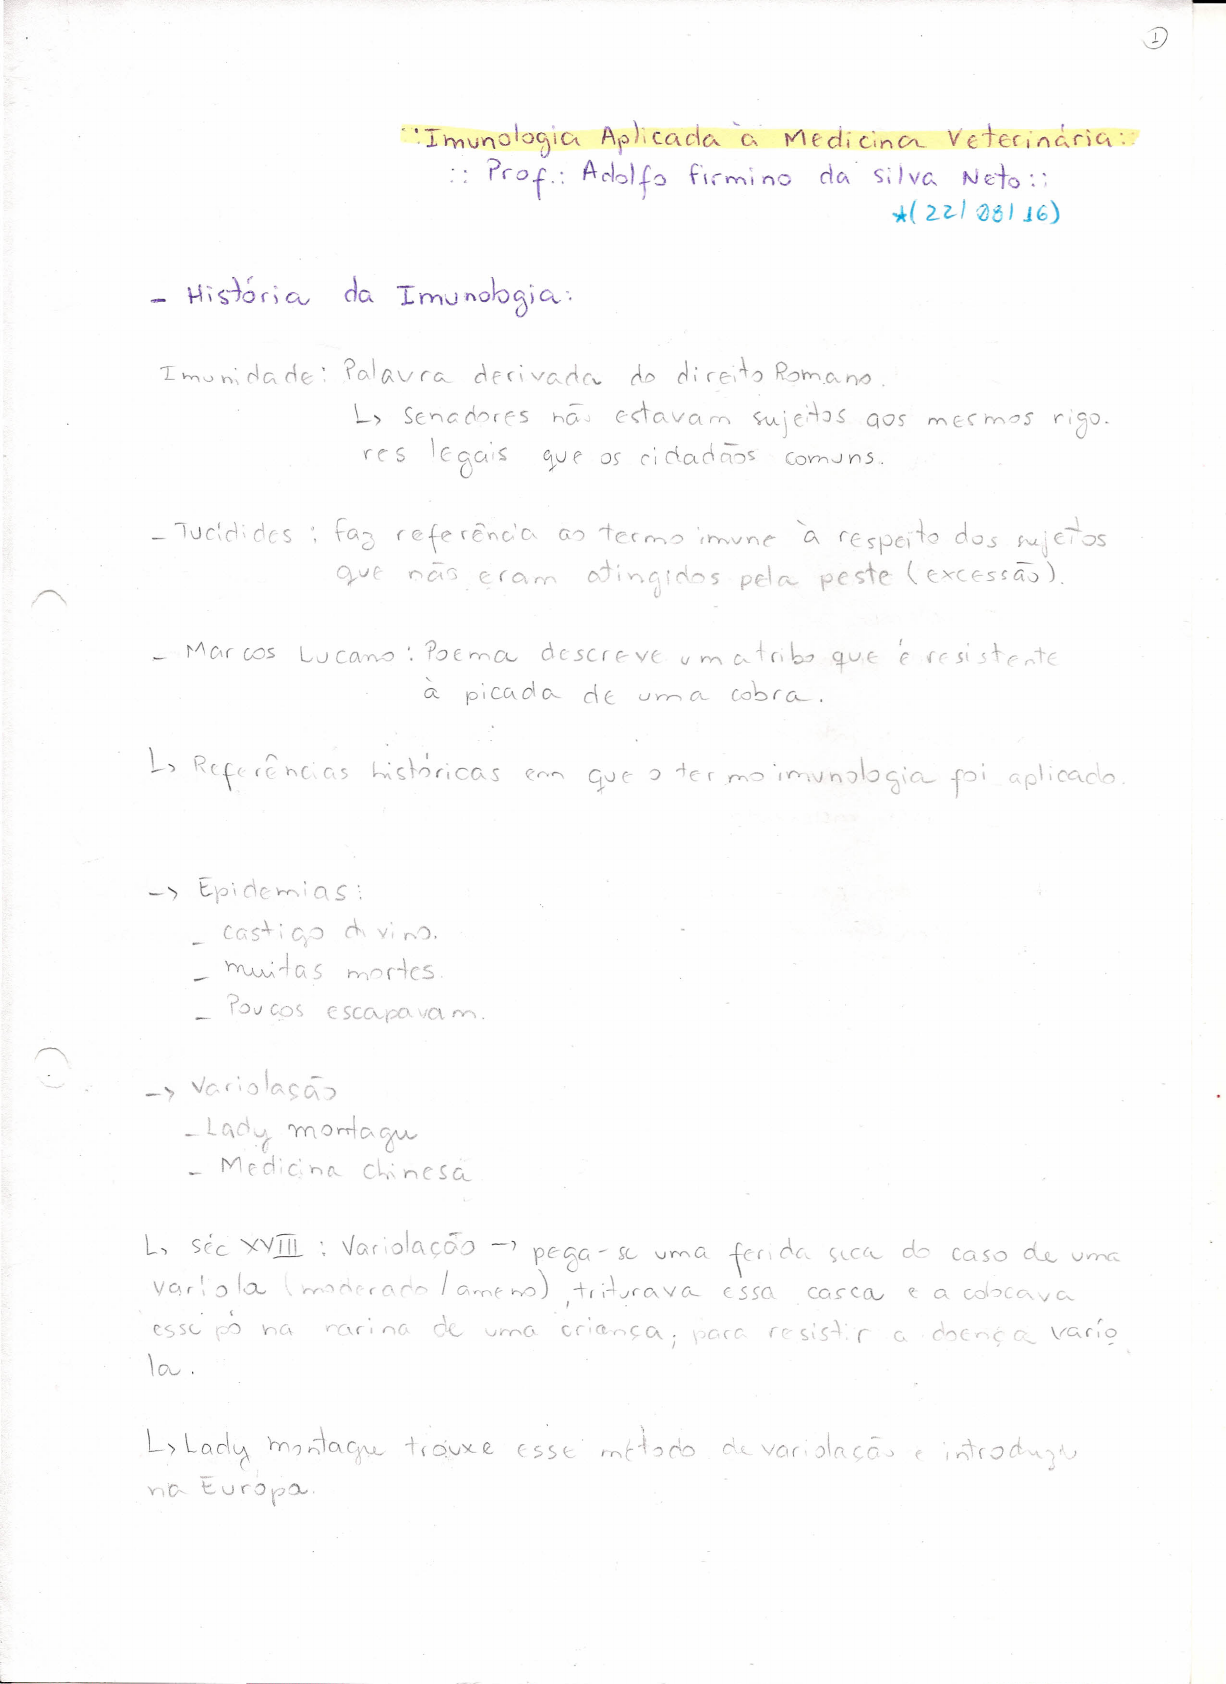 1
::Imunologia Aplicada à Medicina Veterinária::
:: Prof.: Adolfo Firmino da Silva Neto::
*(22/08/16)
- História da Imunologia:
Imunidade: Palavra derivada do direito Romano.
↳ Senadores não estavam sujeitos aos mesmos rigo-
res legais que os cidadãos comuns.
- Tucídides: faz referência ao termo imune à respeito dos sujeitos
que não eram atingidos pela peste (excessão).
- Marcos Lucano: Poema descreve uma tribo que é resistente
à picada de uma cobra.
↳ Referências históricas em que o termo imunologia foi aplicado.
→ Epidemias:
- castigo divino.
- muitas mortes.
- Poucos escapavam.
→ Variolação
- Lady montagu
- Medicina chinesa
↳ séc XVIII: Variolação → pega-se uma ferida seca do caso de uma
varíola (moderado/ameno), triturava essa casca e a colocava
esse pó na narina de uma criança; para resistir a doença varío
la.
↳ Lady montagu trouxe esse método de variolação e introduziu
na Europa.